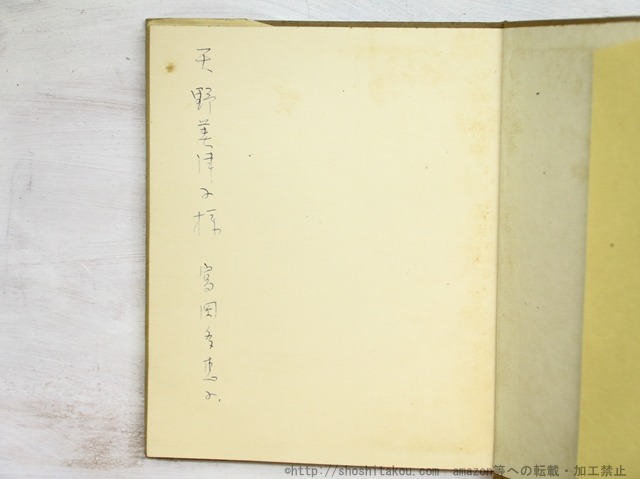 天野美津子様 富岡多恵子
©http://shoshitakou.com amazon等への転載・加工禁止